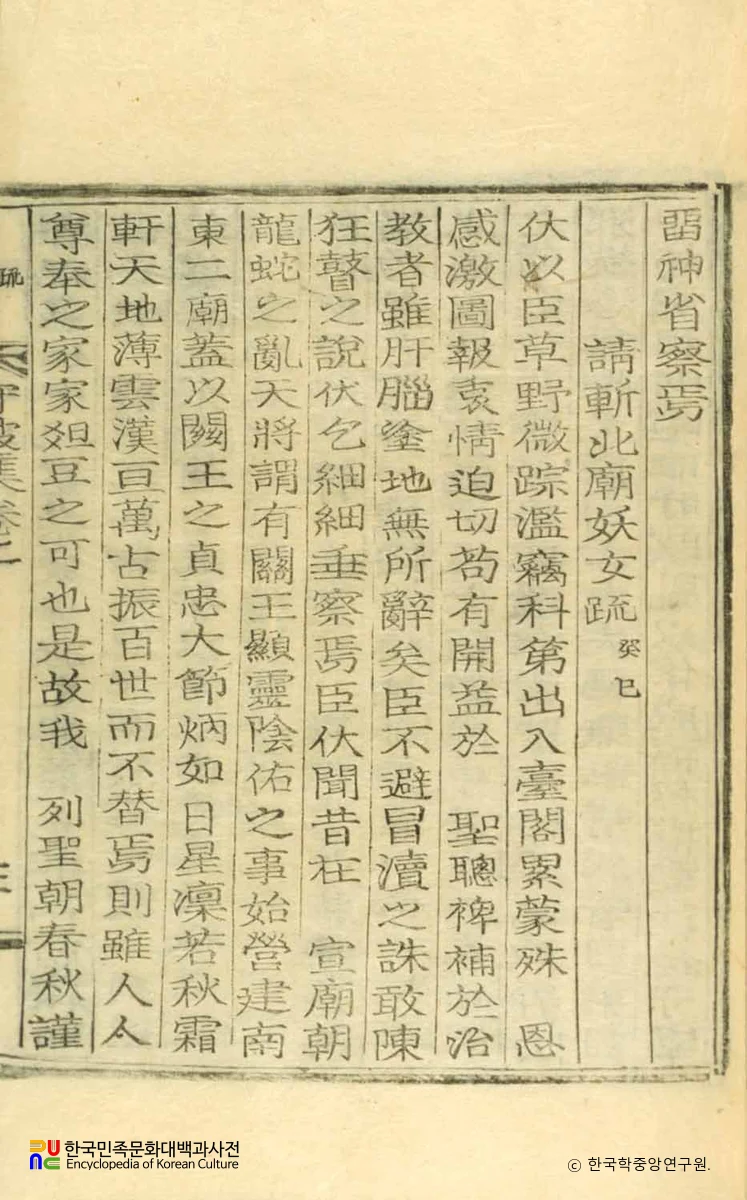 留神省察焉
請斬北廟妖女疏 癸巳
伏以臣草野微踪濫竊科第出入臺閣累蒙殊 恩
感激圖報衷情迫切苟有開益於 聖聰裨補於治
教者雖肝腦塗地無所辭矣臣不避冒瀆之誅敢陳
狂瞽之說伏乞細細垂察焉臣伏聞昔在 宣廟朝
龍蛇之亂天將謂有關王顯靈陰佑之事始營建南
東二廟蓋以關王之貞忠大節炳如日星凜若秋霜
軒天地薄雲漢亘萬古振百世而不替焉則雖人人
尊奉之家家俎豆之可也是故我 列聖朝春秋謹
疏
한국민족문화대백과사전
Encyclopedia of Korean Culture
© 한국학중앙연구원.